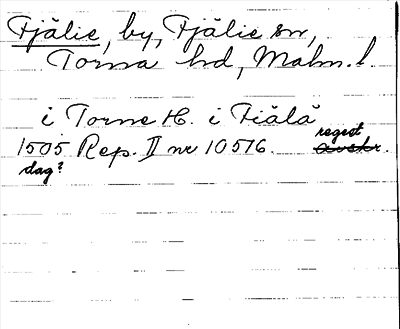 Fjälie, by, Fjälie sn,
Torna hd, Malm. l.
i Torne H. i Fiälä
1505 Rep. II nr 10516. regest avskr.
dag?